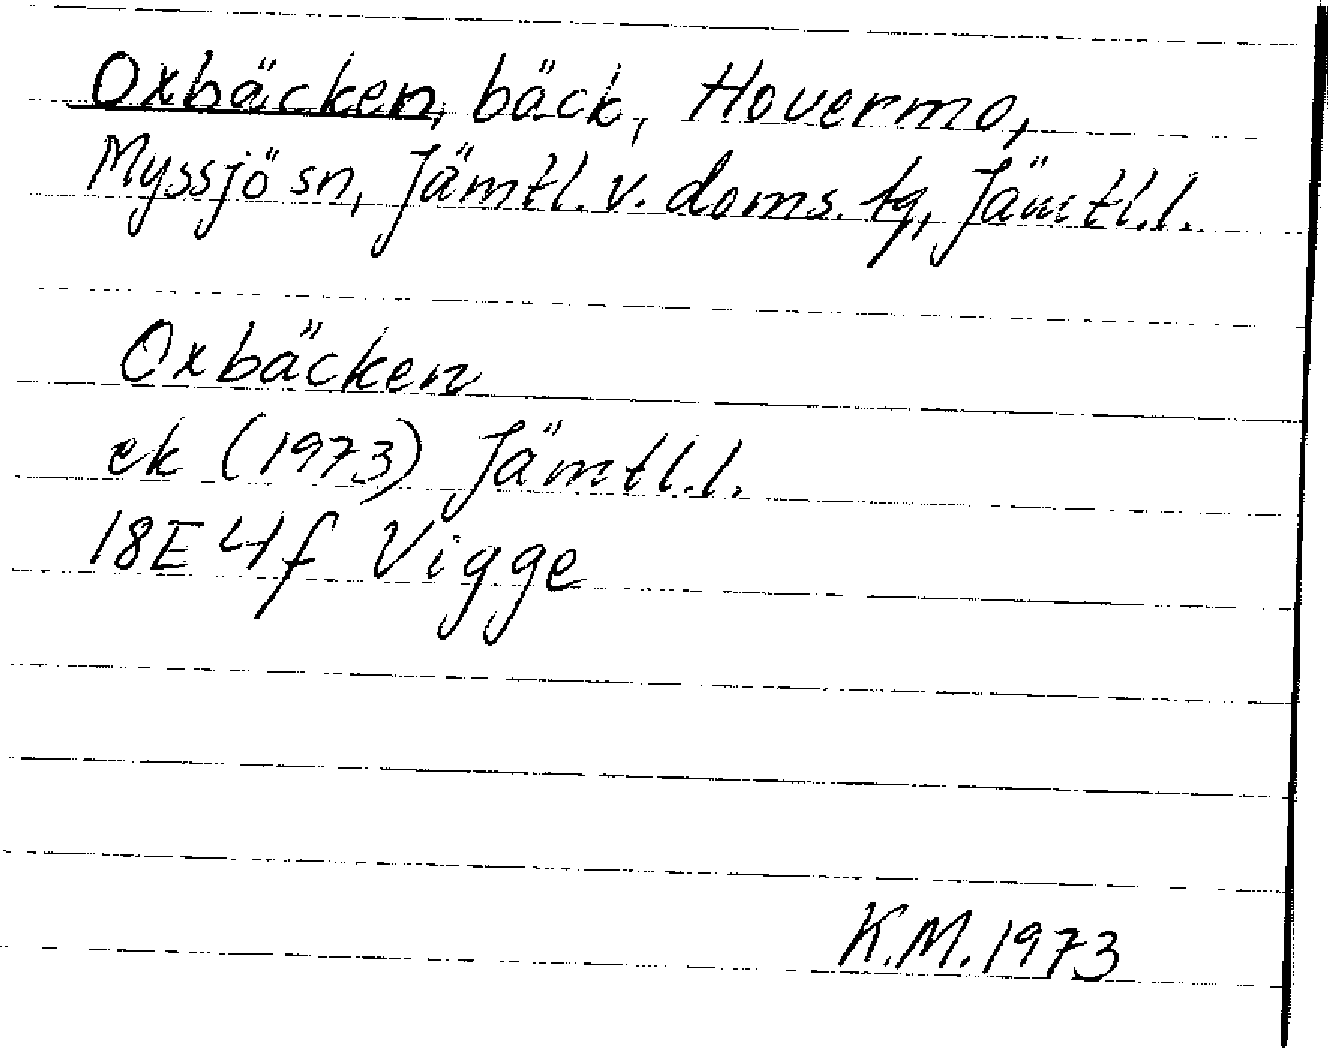 Oxbäcken, bäck, Hovermo,
Myssjö sn, Jämtl. v. doms. tg, Jämtl.l.
Oxbäcken
ek (1973) Jämtl.l.
18E 4f Vigge
K.M. 1973